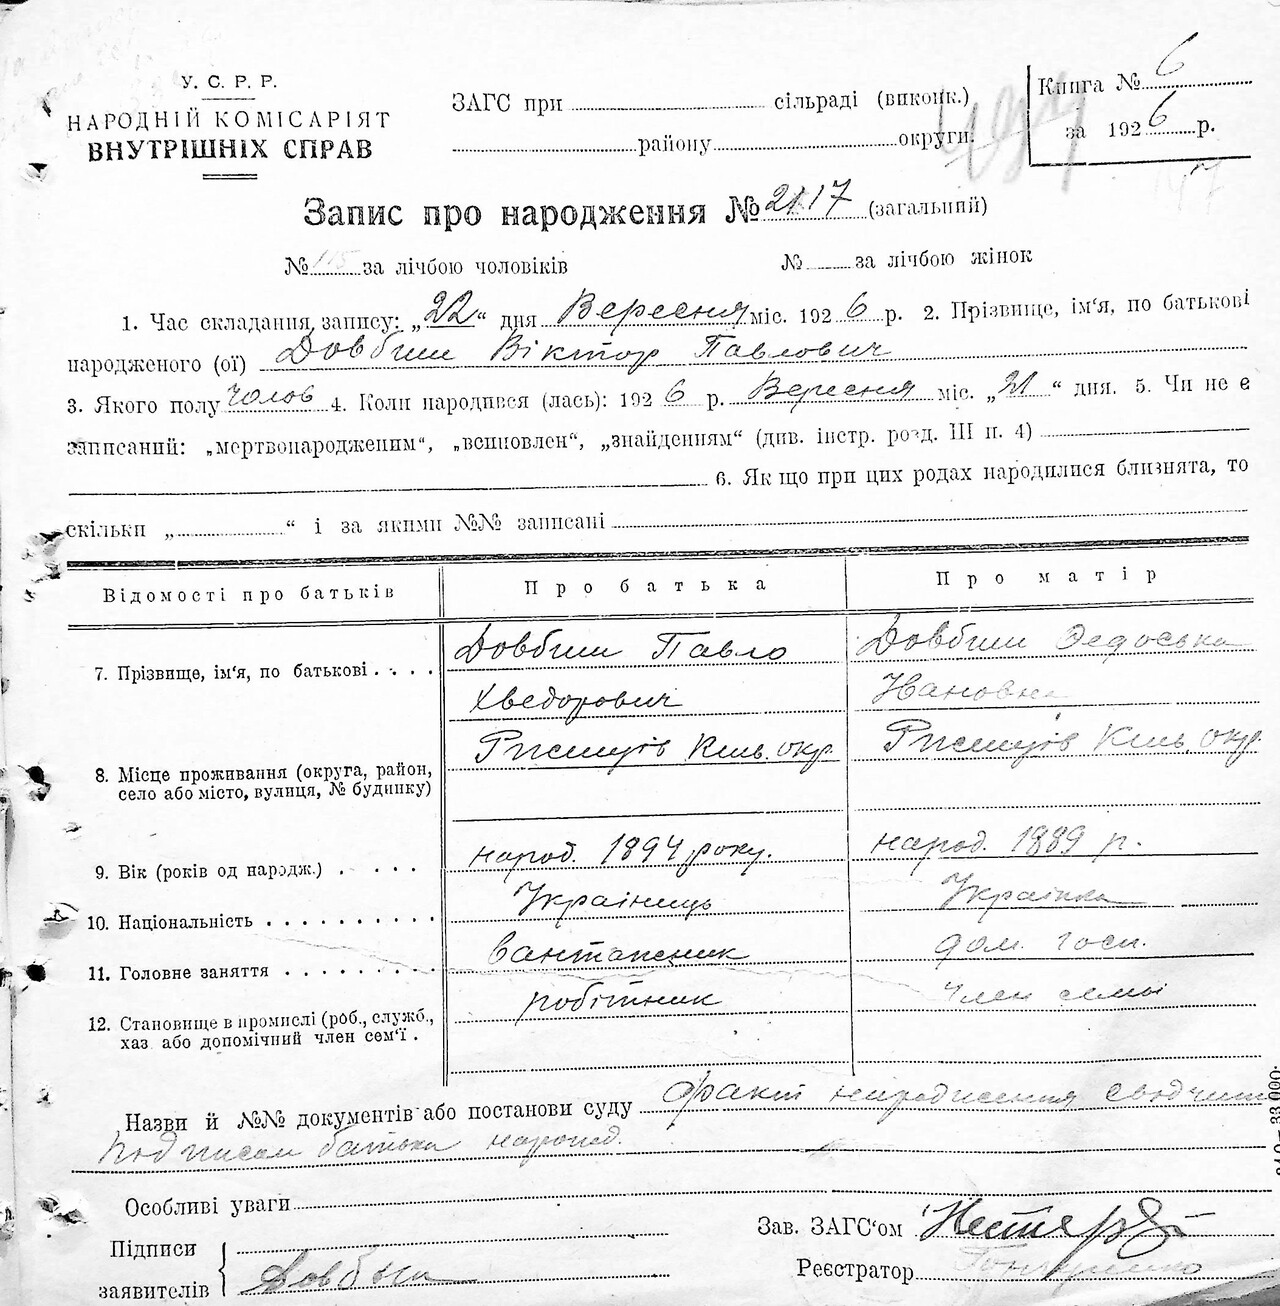 У. С. Р. Р.
НАРОДНІЙ КОМІСАРІЯТ
ВНУТРІШНІХ СПРАВ
ЗАГС при сільраді (виконк.)
району округи
Книга № 6
за 1926 р.
Запис про народження № 2117 (загальний)
№ 115 за лічбою чоловіків № за лічбою жінок
1. Час складання запису: „22“ дня Вересня міс. 1926 р. 2. Прізвище, ім'я, по батькові
народженого (ої) Довбиш Віктор Павлович
3. Якого полу чолов 4. Коли народився (лась): 1926 р. Вересня міс. „21“ дня. 5. Чи не є
записаний: „мертвонародженим“, „всиновлен“, „знайденням“ (див. інстр. розд. III п. 4)
6. Як що при цих родах народилися близнята, то
скільки „ “ і за якими №№ записані
Відомості про батьків Про батька Про матір
7. Прізвище, ім'я, по батькові . . . . Довбиш Павло Довбиш Федоська
Хведорович Ивановна
Ржищів Київ. окр. Ржищів Київ. окр.
8. Місце проживання (округа, район,
село або місто, вулиця, № будинку)
9. Вік (років од народж.) . . . . . народ. 1894 року. народ. 1889 р.
10. Національність . . . . . . . . . . Українець Українка
11. Головне заняття . . . . . . . . . вантажник дом. госп.
12. Становище в промислі (роб., служб.,
хаз або допомічний член сем'ї . робітник член семьі
Назви й №№ документів або постанови суду факт народження сводчит
подписом батька
Особливі уваги
Підписи
заявителів Довбиш
Зав. ЗАГС‘ом
Реєстратор